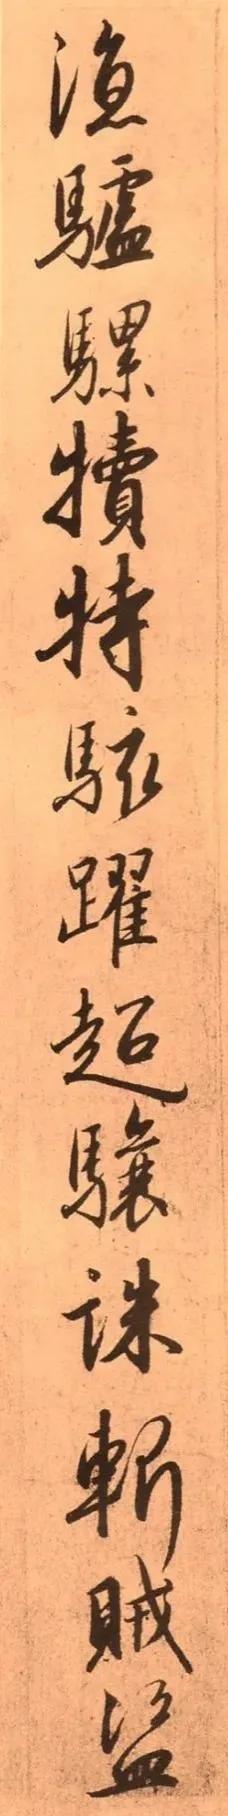 涼驢騾犢特駭躍超驤誅斬賊盜